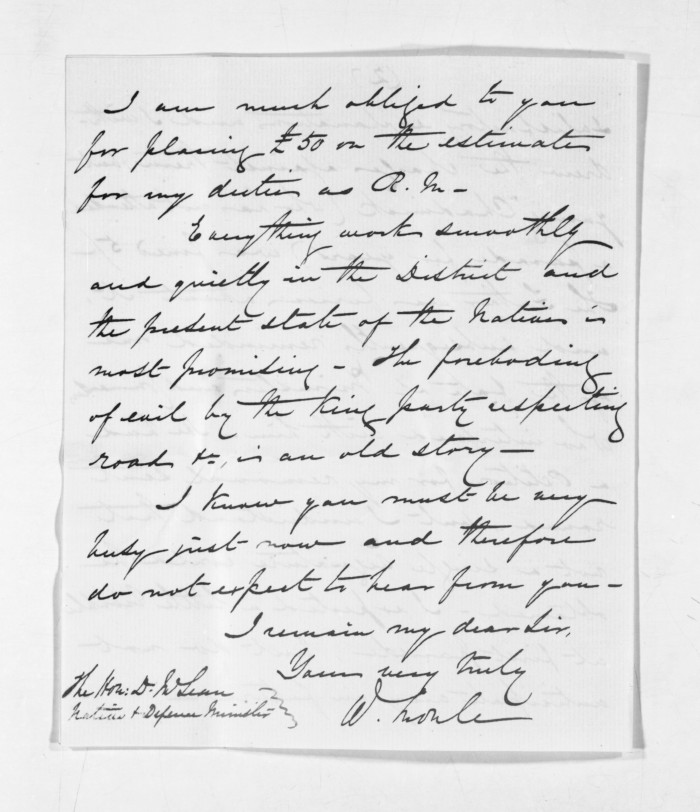 I am much obliged to you
for placing £50 on the estimates
for my duties as R. M. -
Everything works smoothly
and quietly in the District and
the present state of the Natives is
most promising - The foreboding
of evil by the King party respecting
roads &c, is an old story -
I know you must be very
busy just now and therefore
do not expect to hear from you -
I remain my dear Sir,
Yours very truly
W.
The Hon: D. McLean
Native & Defence Minister